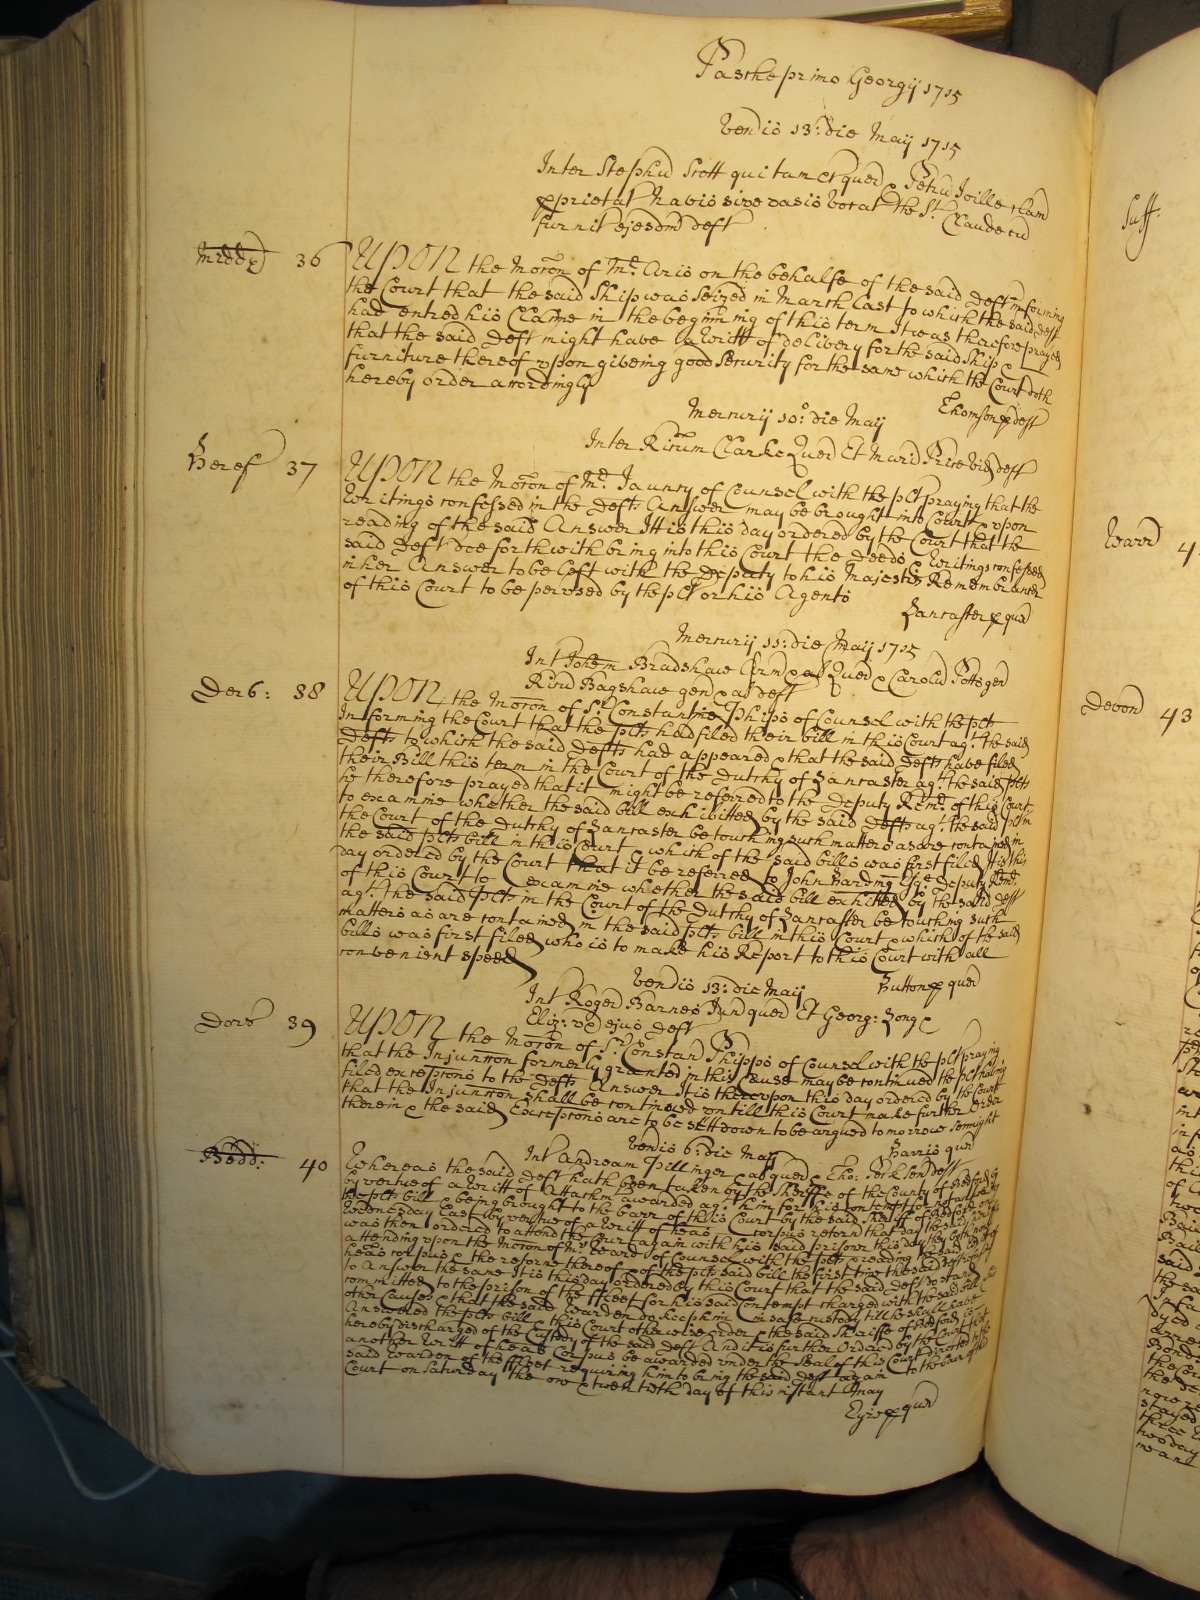 Pasche primo Georgij 1715
Ven̄dis 13.° die Maij 1715
Inter Stephu͞ Scott qui tam &c quer̄ & Petru͞ Joille clam̄
proprietat̄ Navis sive vasis vocat̄ the St. Claude cu͞
furnit̄ ejusdm̄ deft
Midd̄x 36 UPON the Moc͞on of Mr. Avis on the behalfe of the said Deft informing
the Court that the said Ship was seized in March last to which the said Deft
had entred his Claime in the begin̄ing of this term It was therefore prayed
that the said Deft might have a Writt of delivery for the said Ship &
furniture thereof upon giveing good Security for the same which the Court doth
hereby order accordingly
Thomson p deft
Mercurij 10.° die Maij
Inter Ricu͞m Clarke Quer̄ Et Mariā Price vid̄ deft
Heref 37 UPON the Moc͞on of Mr. Jauncy of Counsel with the plt praying that the
Writings confessed in the Defts Answer may be brought into Court & upon
reading of the said Answer It is this day ordered by the Court that the
said Deft doe forthwith bring into this Court the Deeds & Writings confessed
in her Answer to be left with the Deputy to his Majesties Remembrancer
of this Court to be perused by the plt or his Agents
Lancaster p quer̄
Mercurij 11.° die Maij 1715
Int̄ Johem Bradshaw Arm̄ & al̄ Quer̄ & Carolū Potts gen̄
Ricu͞ Bagshaw gen̄ & al̄ deft
Derb: 38 UPON the Moc͞on of Sr. Constantine Phips of Counsel with the plts
Informing the Court that the plts had filed their bill in this Court agt. the said
Defts to which the said Defts had appeared & that the said Defts have filed
their Bill this term in the Court of the Dutchy of Lancaster agt. the said plts
he therefore prayed that it might be referred to the Deputy Remr. of this Court
to examine whether the said bill exhibitted by the said Defts agt. the said plts in
the Court of the Dutchy of Lancaster be touching such matters as are contained in
the said plts bill in this Court & which of the said bills was first filed It is this
day ordered by the Court that it be referred to John Harding Esqr. Deputy Remr.
of this Court to examine whether the said bill exhitted by the said deft
agt. the said plts in the Court of the Dutchy of Lancaster be touching such
matters as are contained in the said plts bill in this Court & which of the said
bills was first filed who is to make his Report to this Court with all
convenient speed
Hutton p quer̄
Ven̄dis 13.° die Maij
Int̄ Roger Barnes Jun̄ quer̄ Et Georg: Long &
Eliz: ux̄ ejus deft
Dors 39 UPON the Moc͞on of Sr. Constan̄ Phipps of Counsel with the plt praying
that the Injunccon formerly granted in this Cause may be continued the plt having
filed excepcons to the Defts Answer It is thereupon this day ordered by the Court
that the Injunccon shall be continued untill this Court make further Order
therein & the said Excepcons are to be sett down to be argued tomorrow sennight
Harris quer̄
Ven̄dis 6.° die Maij
Int̄ Andream Pillinger & al̄ quer̄ & Tho: Jackson deft
Bedd: 40 Whereas the said Deft hath been taken by the Sheriffe of the County of Bedford
by vertue of a Writt of Attachm̄ awarded agt. him for his contempt for not answering
the plts bill & being brought to the barr of this Court by the said Sheriff of Bedford on
Wednesday last by vertue of a Writt of heās Corpus return that day the said Sheriff
was then ordered to attend the Court again with his said prisoner this day they both now
attending upon the Moc͞on of Mr. Ward of Counsel with the plts & reading the said Writt of
heās corpus & the returne thereof & of the plts said bill the first time the said Deft
to Answer the same It is this day ordered by this Court that the said Deft do stand
committed to the prison of the Fleet for his said contempt charged with the said bill and
other Causes & that the said Warden do keep him in safe custody till he shall have
Answered the plts bill & this Court otherwise order & the said Sheriffe of Bedford is
hereby discharged of the Custody of the said Deft And it is further Ordered by the Court that
another Writt of heās Corpus be awarded under the Seal of this Court directed to the
said Warden of the Fleet requiring him to bring the said Deft again to the barr of this
Court on Saturday the one & twentieth day of this instant May
Eyre p quer̄
Suff:
Warr̄ 4
Devon 43